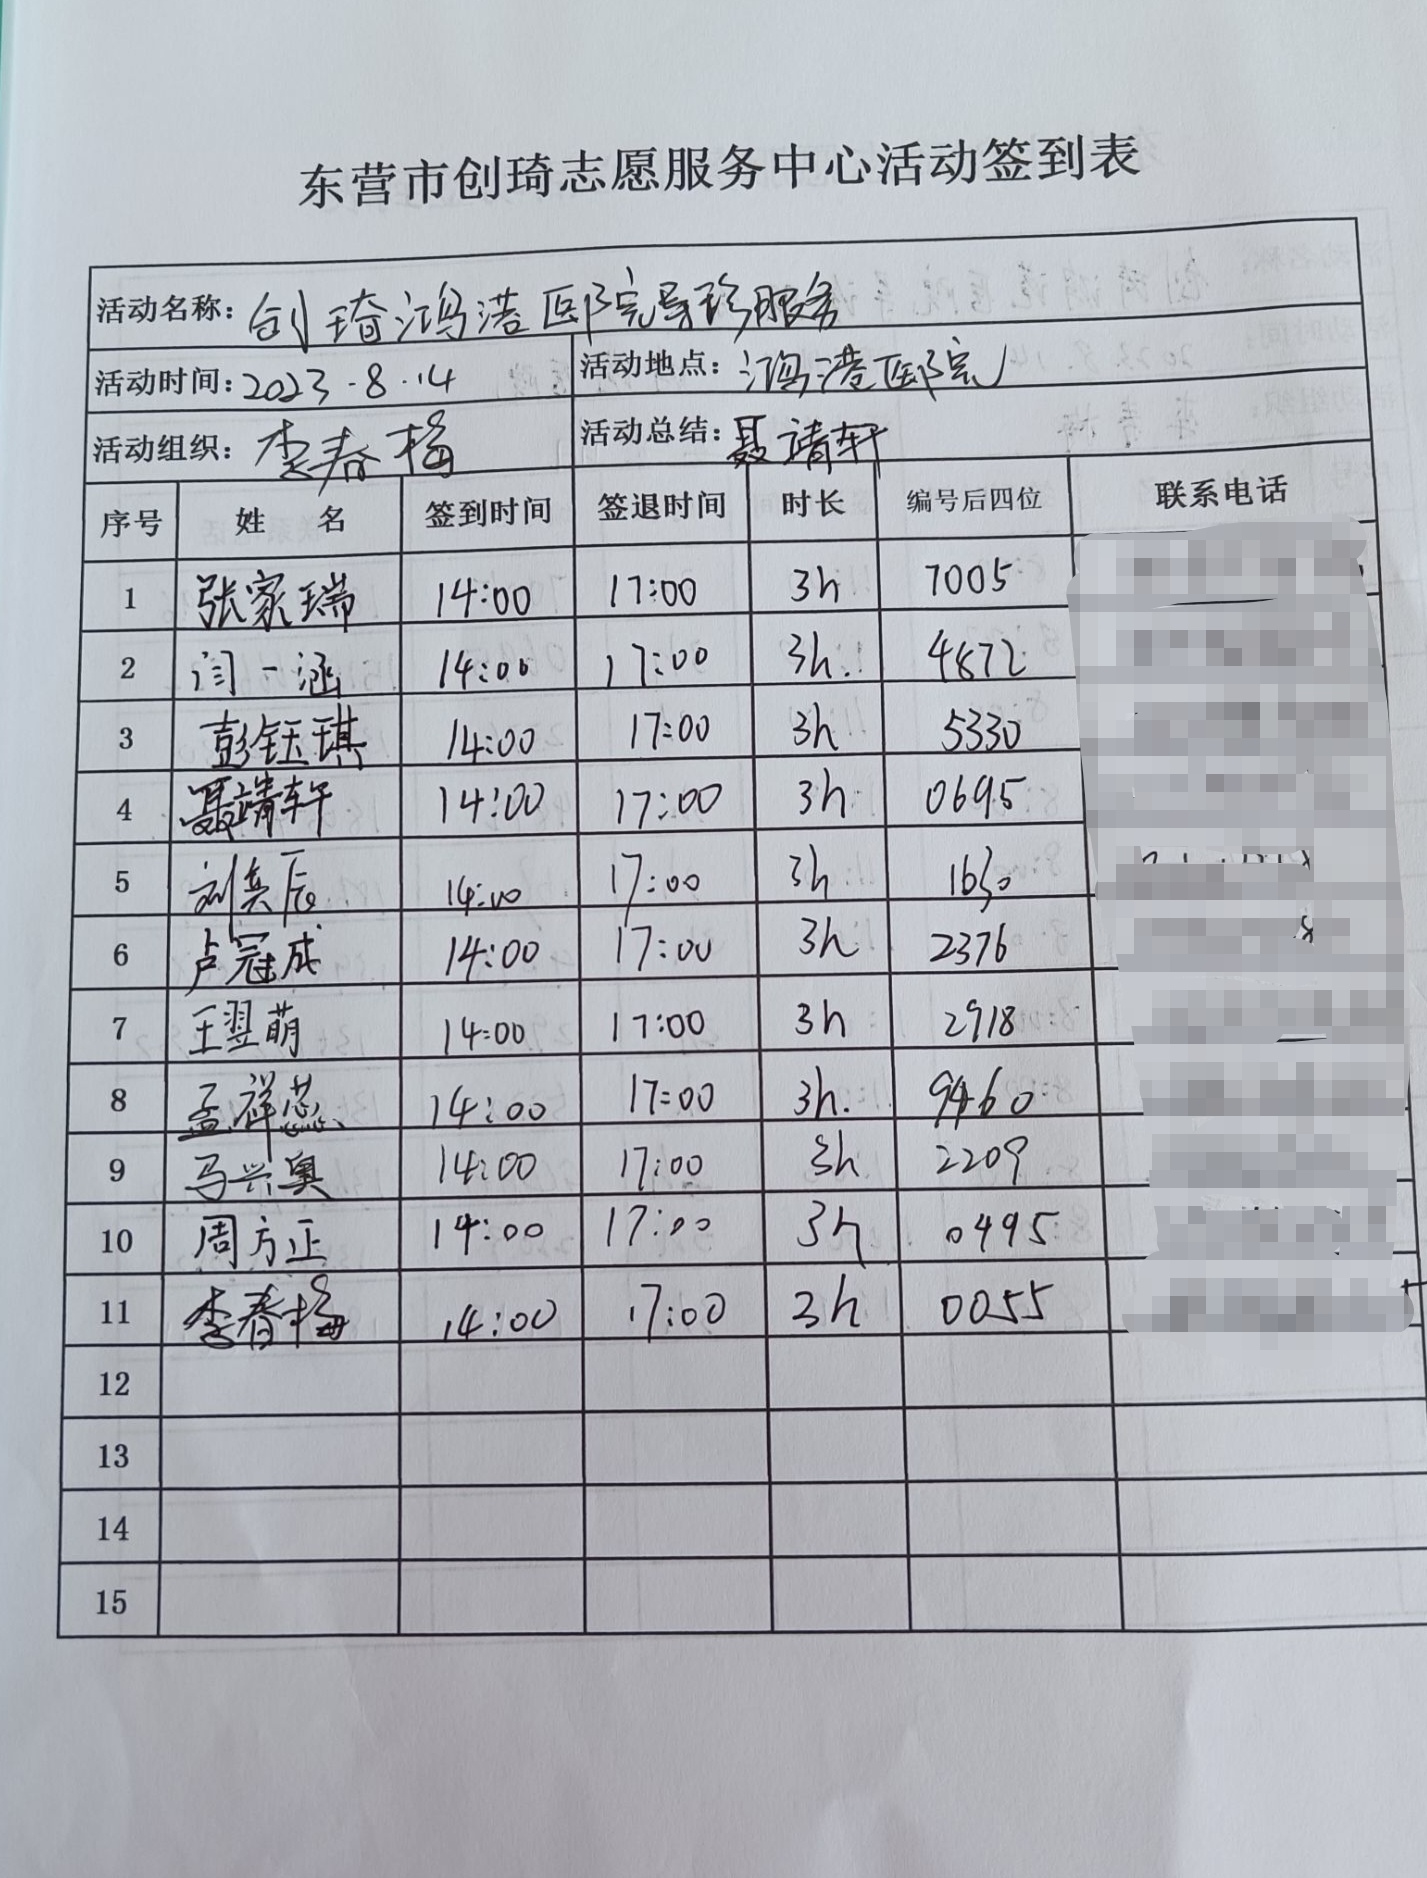 东营市创琦志愿服务中心活动签到表
活动名称：创琦鸿港医院导诊服务
活动时间：2023.8.14 活动地点：鸿港医院
活动组织：李春梅 活动总结：聂靖轩
序号 姓 名 签到时间 签退时间 时长 编号后四位 联系电话
1 张家瑞 14:00 17:00 3h 7005
2 闫一涵 14:00 17:00 3h. 4872
3 彭钰琪 14:00 17:00 3h 5330
4 聂靖轩 14:00 17:00 3h 0695
5 刘奕辰 14:00 17:00 3h 1630
6 卢冠成 14:00 17:00 3h 2376
7 王翌萌 14:00 17:00 3h 2918
8 孟祥蕊 14:00 17:00 3h. 9460
9 马兴奥 14:00 17:00 3h 2209
10 周方正 14:00 17:00 3h 0495
11 李春梅 14:00 17:00 3h 0055
12
13
14
15